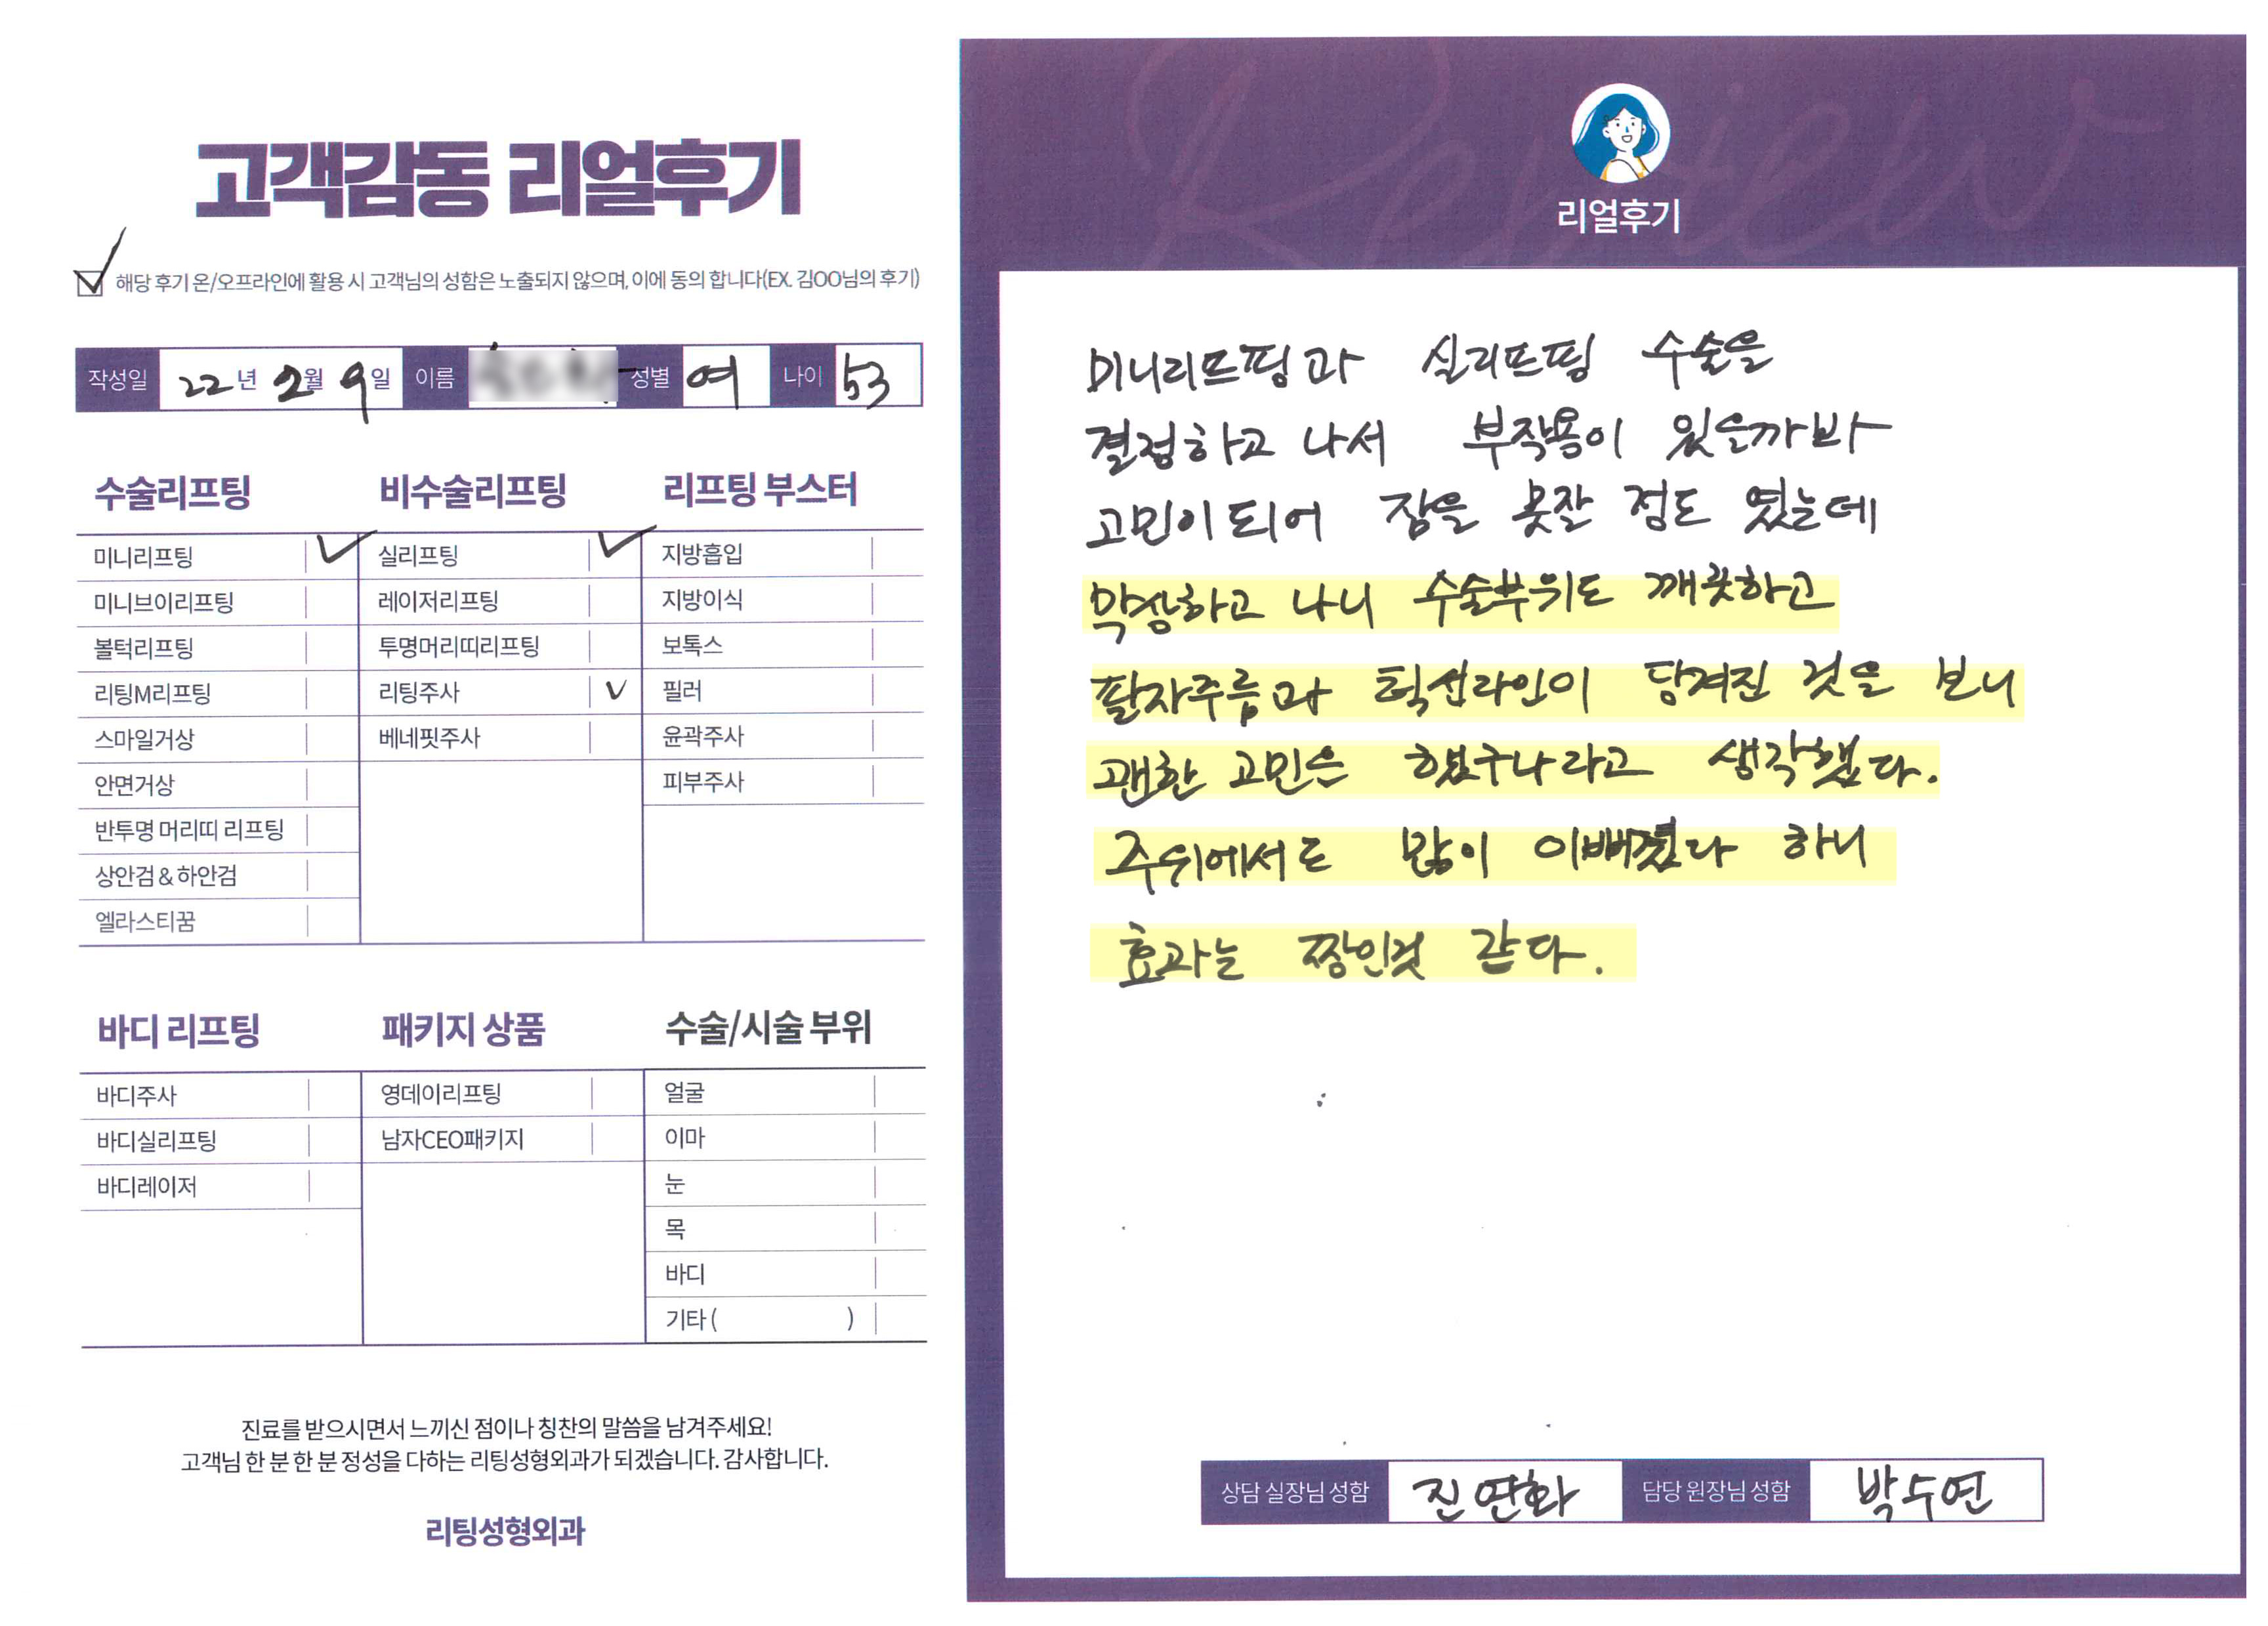 고객감동 리얼후기
해당 후기 온/오프라인에 활용 시 고객님의 성함은 노출되지 않으며, 이에 동의 합니다(EX. 김OO님의 후기)
작성일 22년 2월 9일 이름 성별 여 나이 53
수술리프팅
미니리프팅 ✓
미니브이리프팅
볼턱리프팅
리팅M리프팅
스마일거상
안면거상
반투명 머리띠 리프팅
상안검 & 하안검
엘라스티꿈
비수술리프팅
실리프팅 ✓
레이저리프팅
투명머리띠리프팅
리팅주사 ✓
베네핏주사
리프팅 부스터
지방흡입
지방이식
보톡스
필러
윤곽주사
피부주사
바디 리프팅
바디주사
바디실리프팅
바디레이저
패키지 상품
영데이리프팅
남자CEO패키지
수술/시술 부위
얼굴
이마
눈
목
바디
기타 ( )
진료를 받으시면서 느끼신 점이나 칭찬의 말씀을 남겨주세요!
고객님 한 분 한 분 정성을 다하는 리팅성형외과가 되겠습니다. 감사합니다.
리팅성형외과
Review
리얼후기
미니리프핑과 실리프핑 수술을
결정하고 나서 부작용이 있을까봐
고민이 되어 잠을 못잘 정도 였는데
막상하고 나니 수술부위도 깨끗하고
팔자주름과 턱선라인이 당겨진 것을 보니
괜한 고민은 했구나라고 생각했다.
주위에서도 많이 이뻐졌다 하니
효과는 짱인것 같다.
상담 실장님 성함 진연화 담당 원장님 성함 박수연